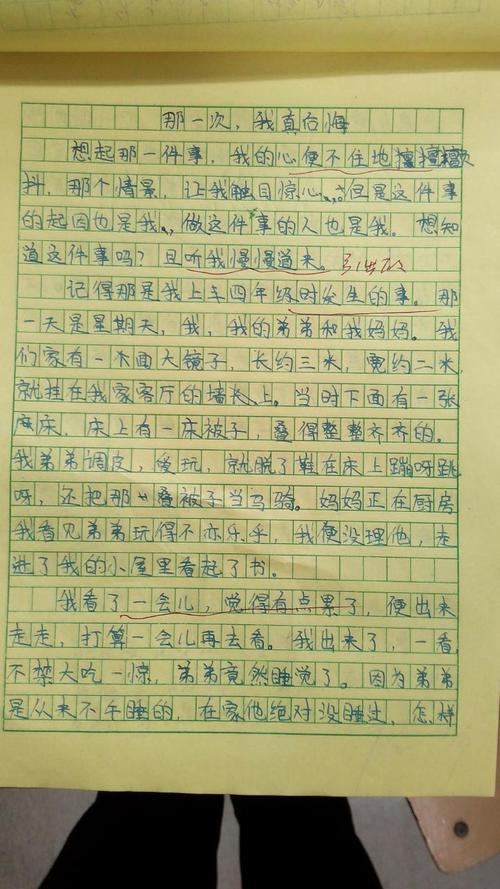 那一次，我真后悔
想起那一件事，我的心便不住地擅擅擞
抖，那个情景，让我触目惊心。但是这件事
的起因也是我，做这件事的人也是我。想知
道这件事吗？且听我慢慢道来。引出下文
记得那是我上车四年级时发生的事。那
一天是星期天，我，我的弟弟和我妈妈。我
们家有一木面大镜子，长约三米，宽约二米，
就挂在我家客厅的墙长上。当时下面有一张
床床，床上有一床被子，叠得整整齐齐的。
我弟弟调皮，爱玩，就脱了鞋在床上蹦呀跳
呀，还把那叠被子当马骑。妈妈正在厨房
我看见弟弟玩得不亦乐乎，我便没理他，走
进了我的小屋里看起了书。
我看了一会儿，觉得有点累了，便出来
走走，打算一会儿再去看。我出来了，一看，
不禁大吃一惊，弟弟竟然睡觉了。因为弟弟
是从来不午睡的，在家他绝对没睡过，怎样